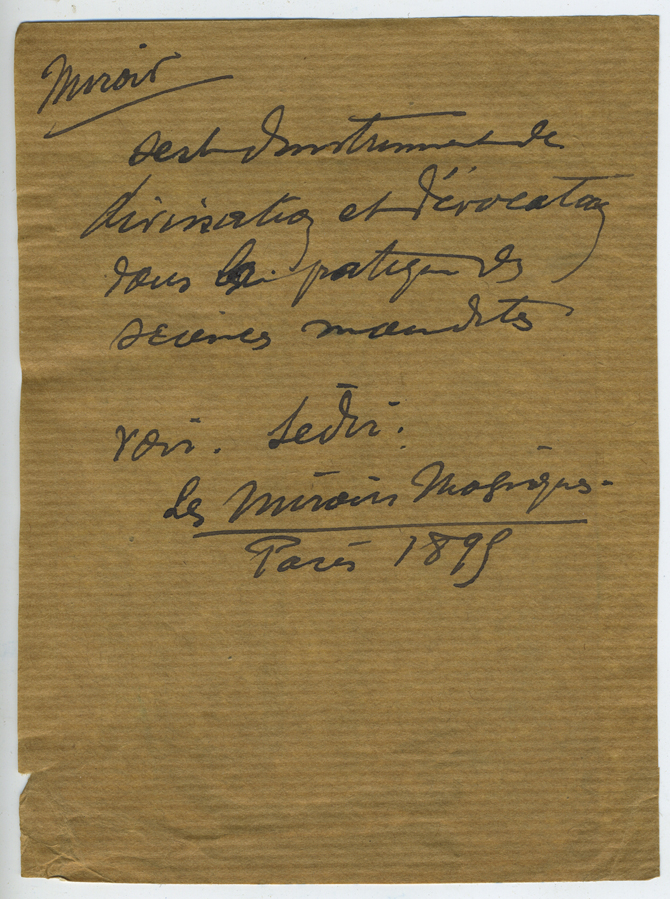 Miroir
sert d'instrument de
divination et d'évocation
dans la pratique des
sciences maudites
voir. Sédir.
Les Miroirs Magiques.
Paris 1895